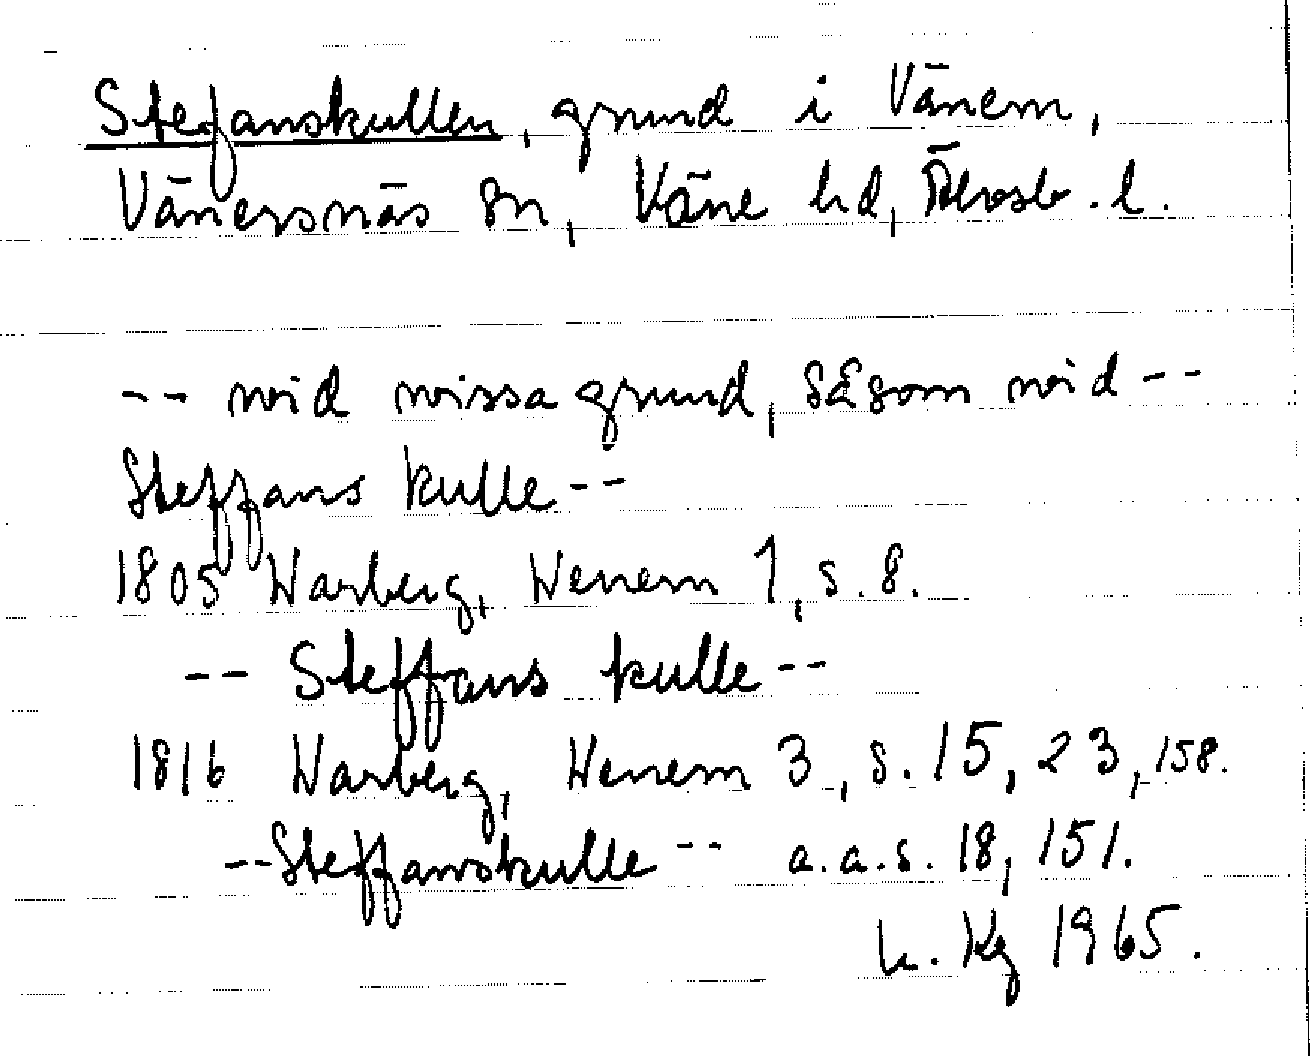 Stefanskullen, grund i Vänern,
Vänersnäs sn, Våne hd, Älvsb. l.
-- wid wissa grund, såsom wid --
Steffans kulle --
1805 Warberg, Wenern 1, s. 8.
-- Steffans kulle --
1816 Warberg, Wenern 3, s. 15, 23, 158.
-- Steffanskulle -- a.a.s. 18, 151.
Kg 1965.